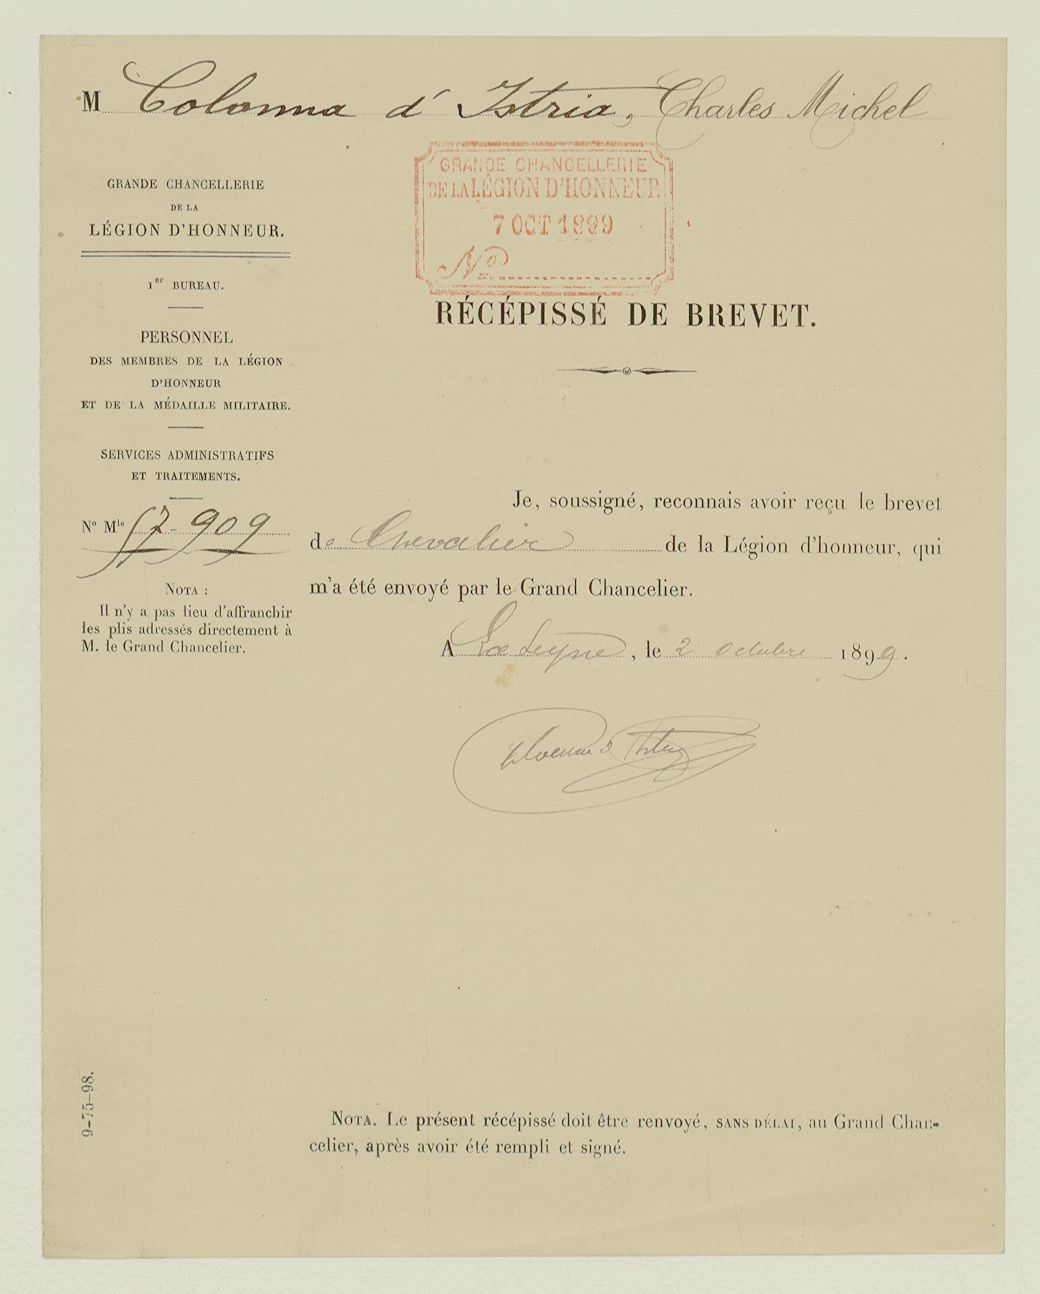 M Colonna d'Istria, Charles Michel
GRANDE CHANCELLERIE
DE LA LÉGION D'HONNEUR
7 OCT 1899
No
GRANDE CHANCELLERIE
DE LA
LÉGION D'HONNEUR.
1er BUREAU.
PERSONNEL
DES MEMBRES DE LA LÉGION
D'HONNEUR
ET DE LA MÉDAILLE MILITAIRE.
SERVICES ADMINISTRATIFS
ET TRAITEMENTS.
No Mle 57-909
NOTA :
Il n'y a pas lieu d'affranchir
les plis adressés directement à
M. le Grand Chancelier.
RÉCÉPISSÉ DE BREVET.
Je, soussigné, reconnais avoir reçu le brevet
de Chevalier de la Légion d'honneur, qui
m'a été envoyé par le Grand Chancelier.
A La Seyne, le 2 octobre 1899.
Colonna d'Istria
9-75-98.
NOTA. Le présent récépissé doit être renvoyé, SANS DÉLAI, au Grand Chan-
celier, après avoir été rempli et signé.